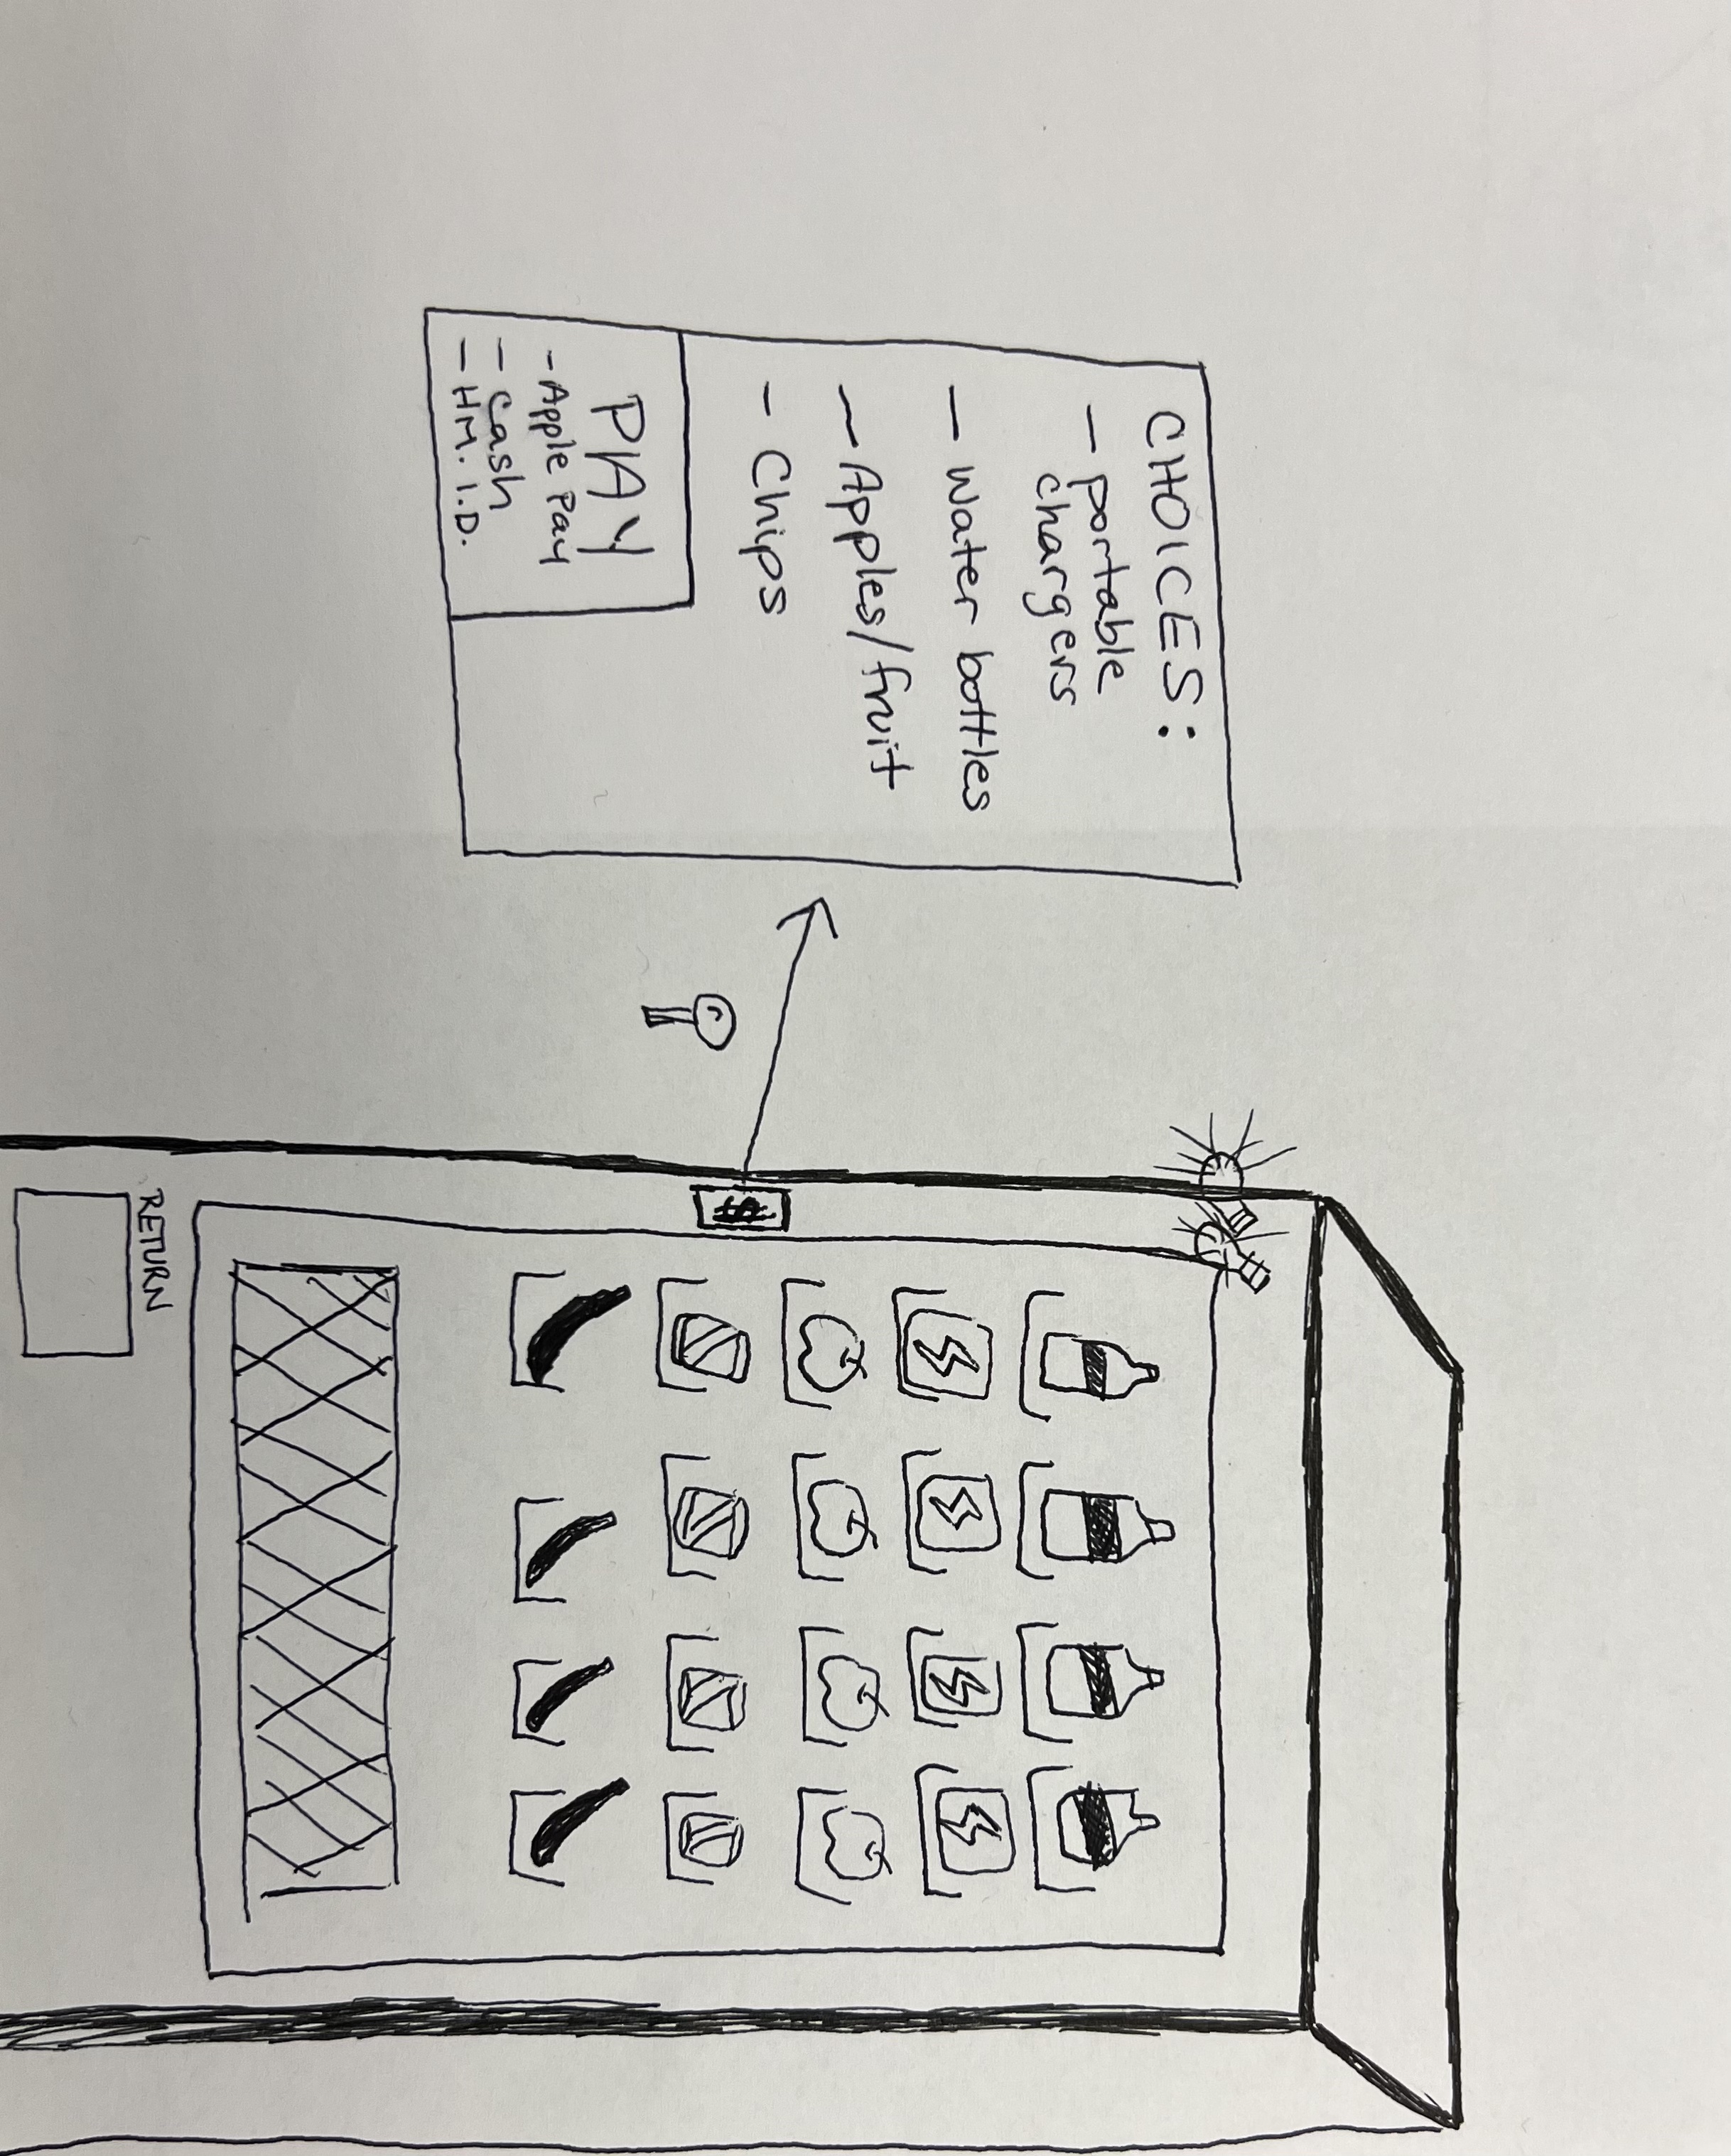 CHOICES:
- portable
chargers
- Water bottles
- Apples/fruit
- Chips
PAY
- Apple Pay
- Cash
- HM. I.D.
$
RETURN